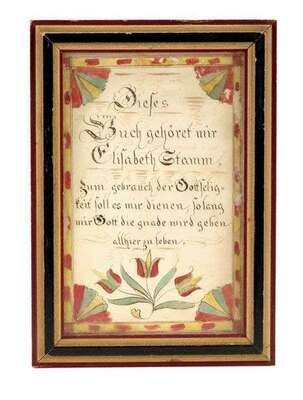 Dieses
Buch gehöret mir
Elisabeth Stamm.
Zum gebrauch der Gottselig-
keit soll es mir dienen, so lang
mir Gott die gnade wird geben
allhier zu leben.